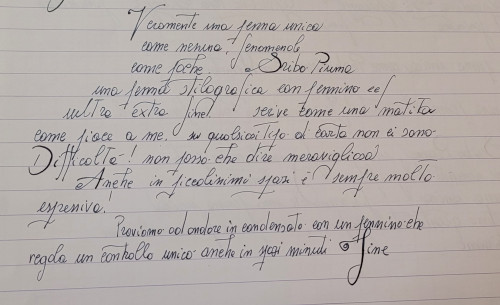 Veramente una penna unica
come nessuna, fenomenale
come poche Scribo Piuma
una penna stilografica con pennino eef
ultra extra fine! scrive come una matita
come piace a me. su qualsiasi tipo di carta non ci sono
Difficoltà! non posso che dire meravigliosa
Anche in piccolissimi spazi è sempre molto
espressiva!
Proviamo ad andare in condensato con un pennino che
regala un controllo unico anche in spazi minuti fine